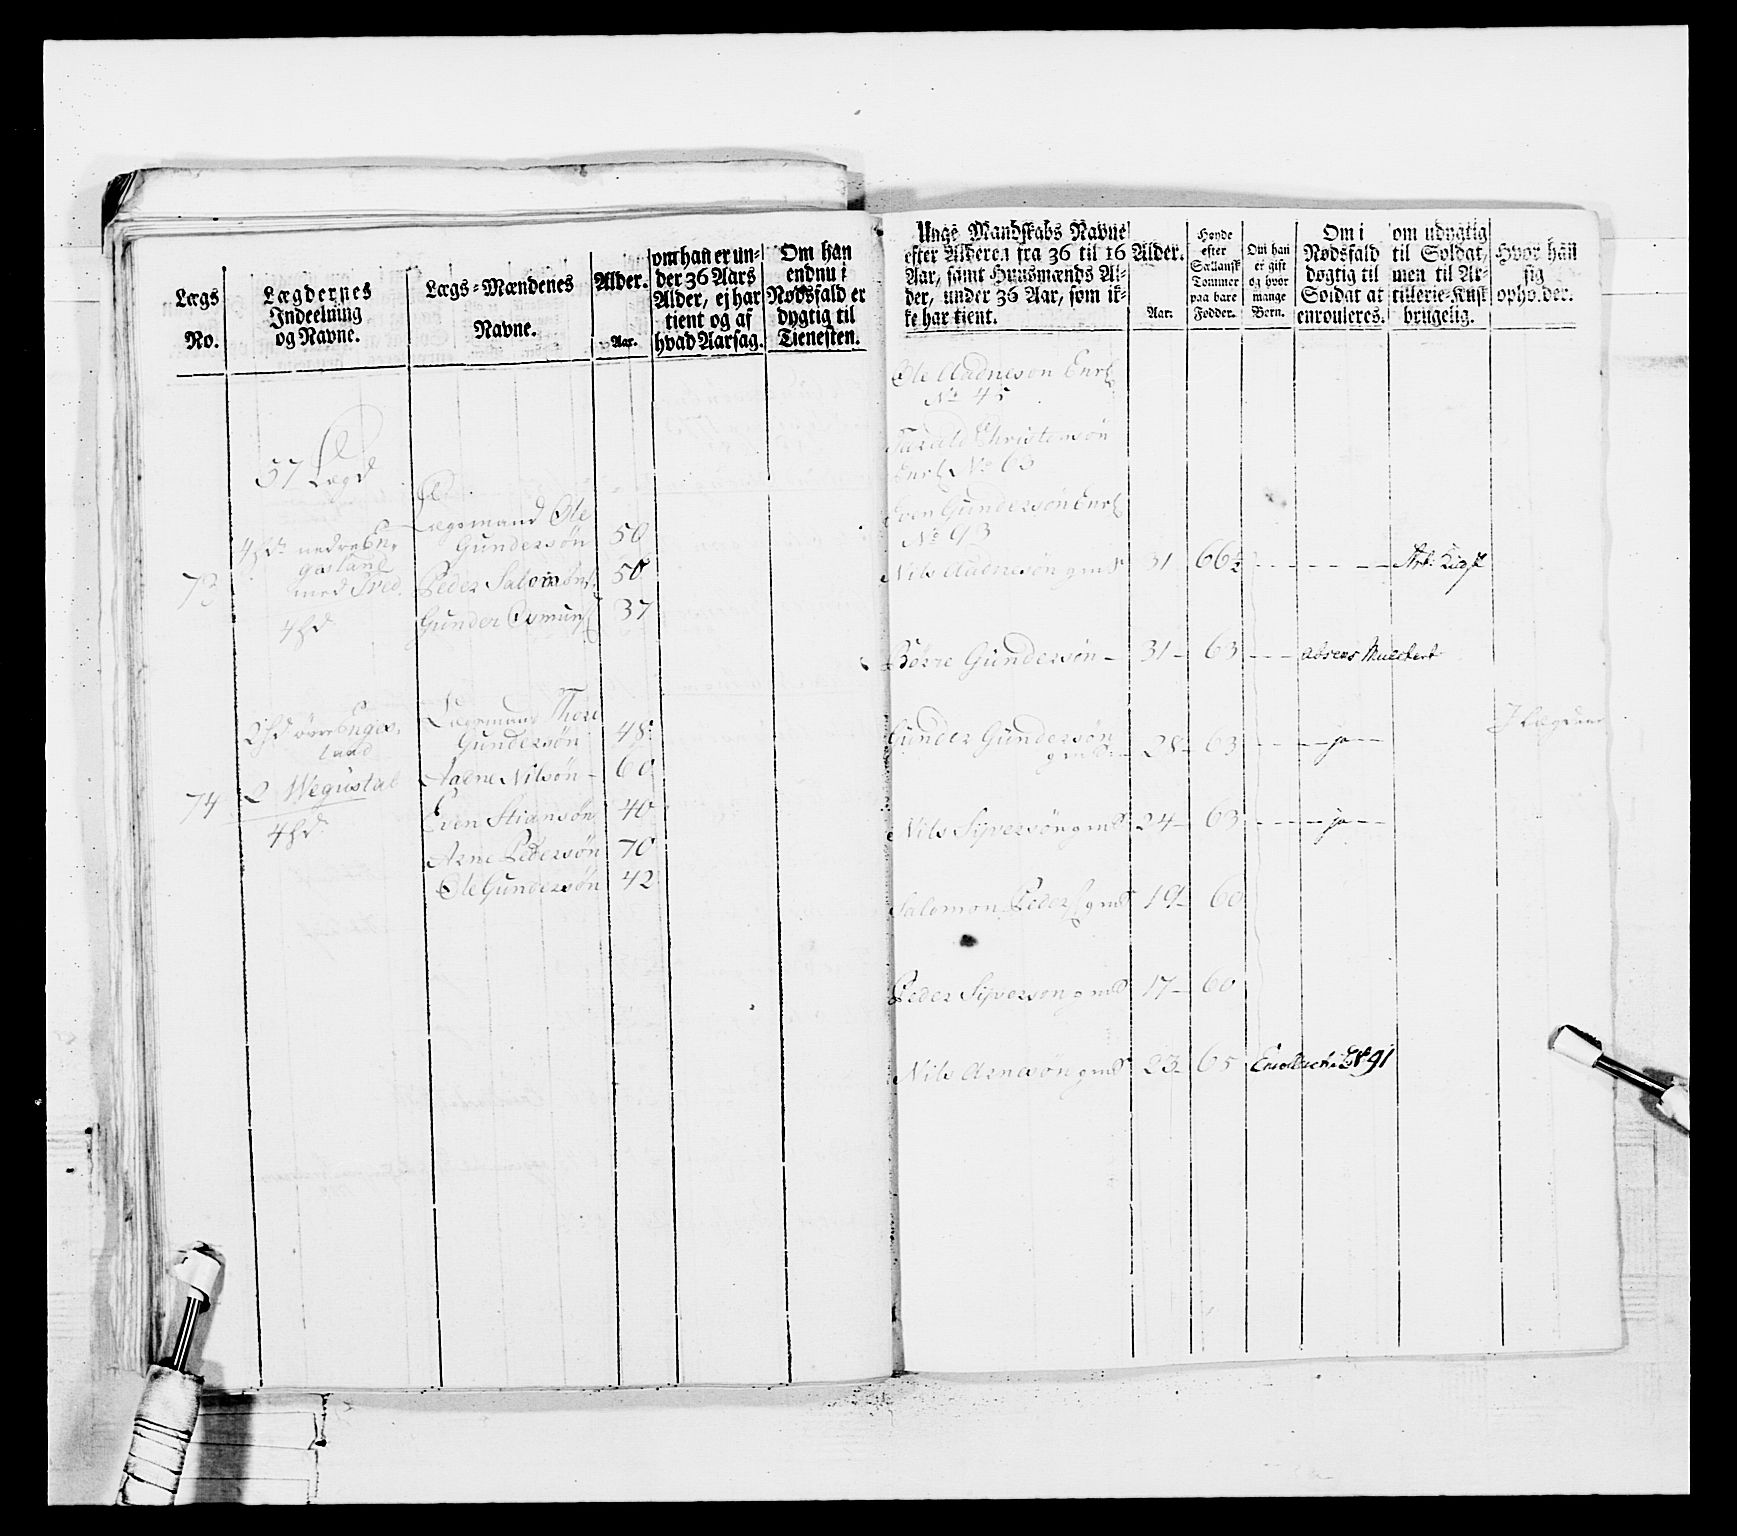 Lægs
No.
Lægdernes
Indeelning
og Navne.
Lægs-Mændenes
Navne.
Alder.
Aar.
om han er un-
der 36 Aars
Alder, ej har
tient og af
hvad Aarsag.
Om han
endnu i
Nødsfald er
dygtig til
Tienesten.
57 Lægd
73
4 hd nedre En-
gesland
med Fred.
4 hd
Lægsmand Ole
Gundersøn 50
Peder Salomøns 50
Gunder Osmuns 37
74
2 hd øvre Enges-
land
2 Wegustal
4 hd
Lægsmand Thore
Gundersøn 48
Nilsøn 60
Even Stiansøn 40
Arne Pedersøn 70
Ole Gundersøn 42
Unge Mandskabs Navne
efter Alderen fra 36 til 16
Aar, samt Huusmænds Al-
der, under 36 Aar, som ik-
ke har tient.
Alder.
Aar.
Høyde
efter
Sællansk
Tommer
paa bare
Fødder.
Om han
er gift
og hvor
mange
Børn.
Om i
Nødsfald
dygtig til
Soldat at
enrouleres.
om udygtig
til Soldat,
men til Ar-
tillerie-Kusk
brugelig.
Hvor han
sig
opholder.
Ole Aadnesøn Enrl
No 45
Harald Christensøn
Enrl No 63
Even Gundersøn Enrl
No 93
Nils Aadnesøn gmd 31 66½ Art: Kusk
Børre Gundersøn 31 63
Gunder Gundersøn
gmd 28 63 ja I Lægden
Nils Siversøn gmd 24 63 ja
Salomon Peders gmd 19 60
Peder Siversøn gmd 17 60
Nils Arnesøn gmd 23 65 No 91